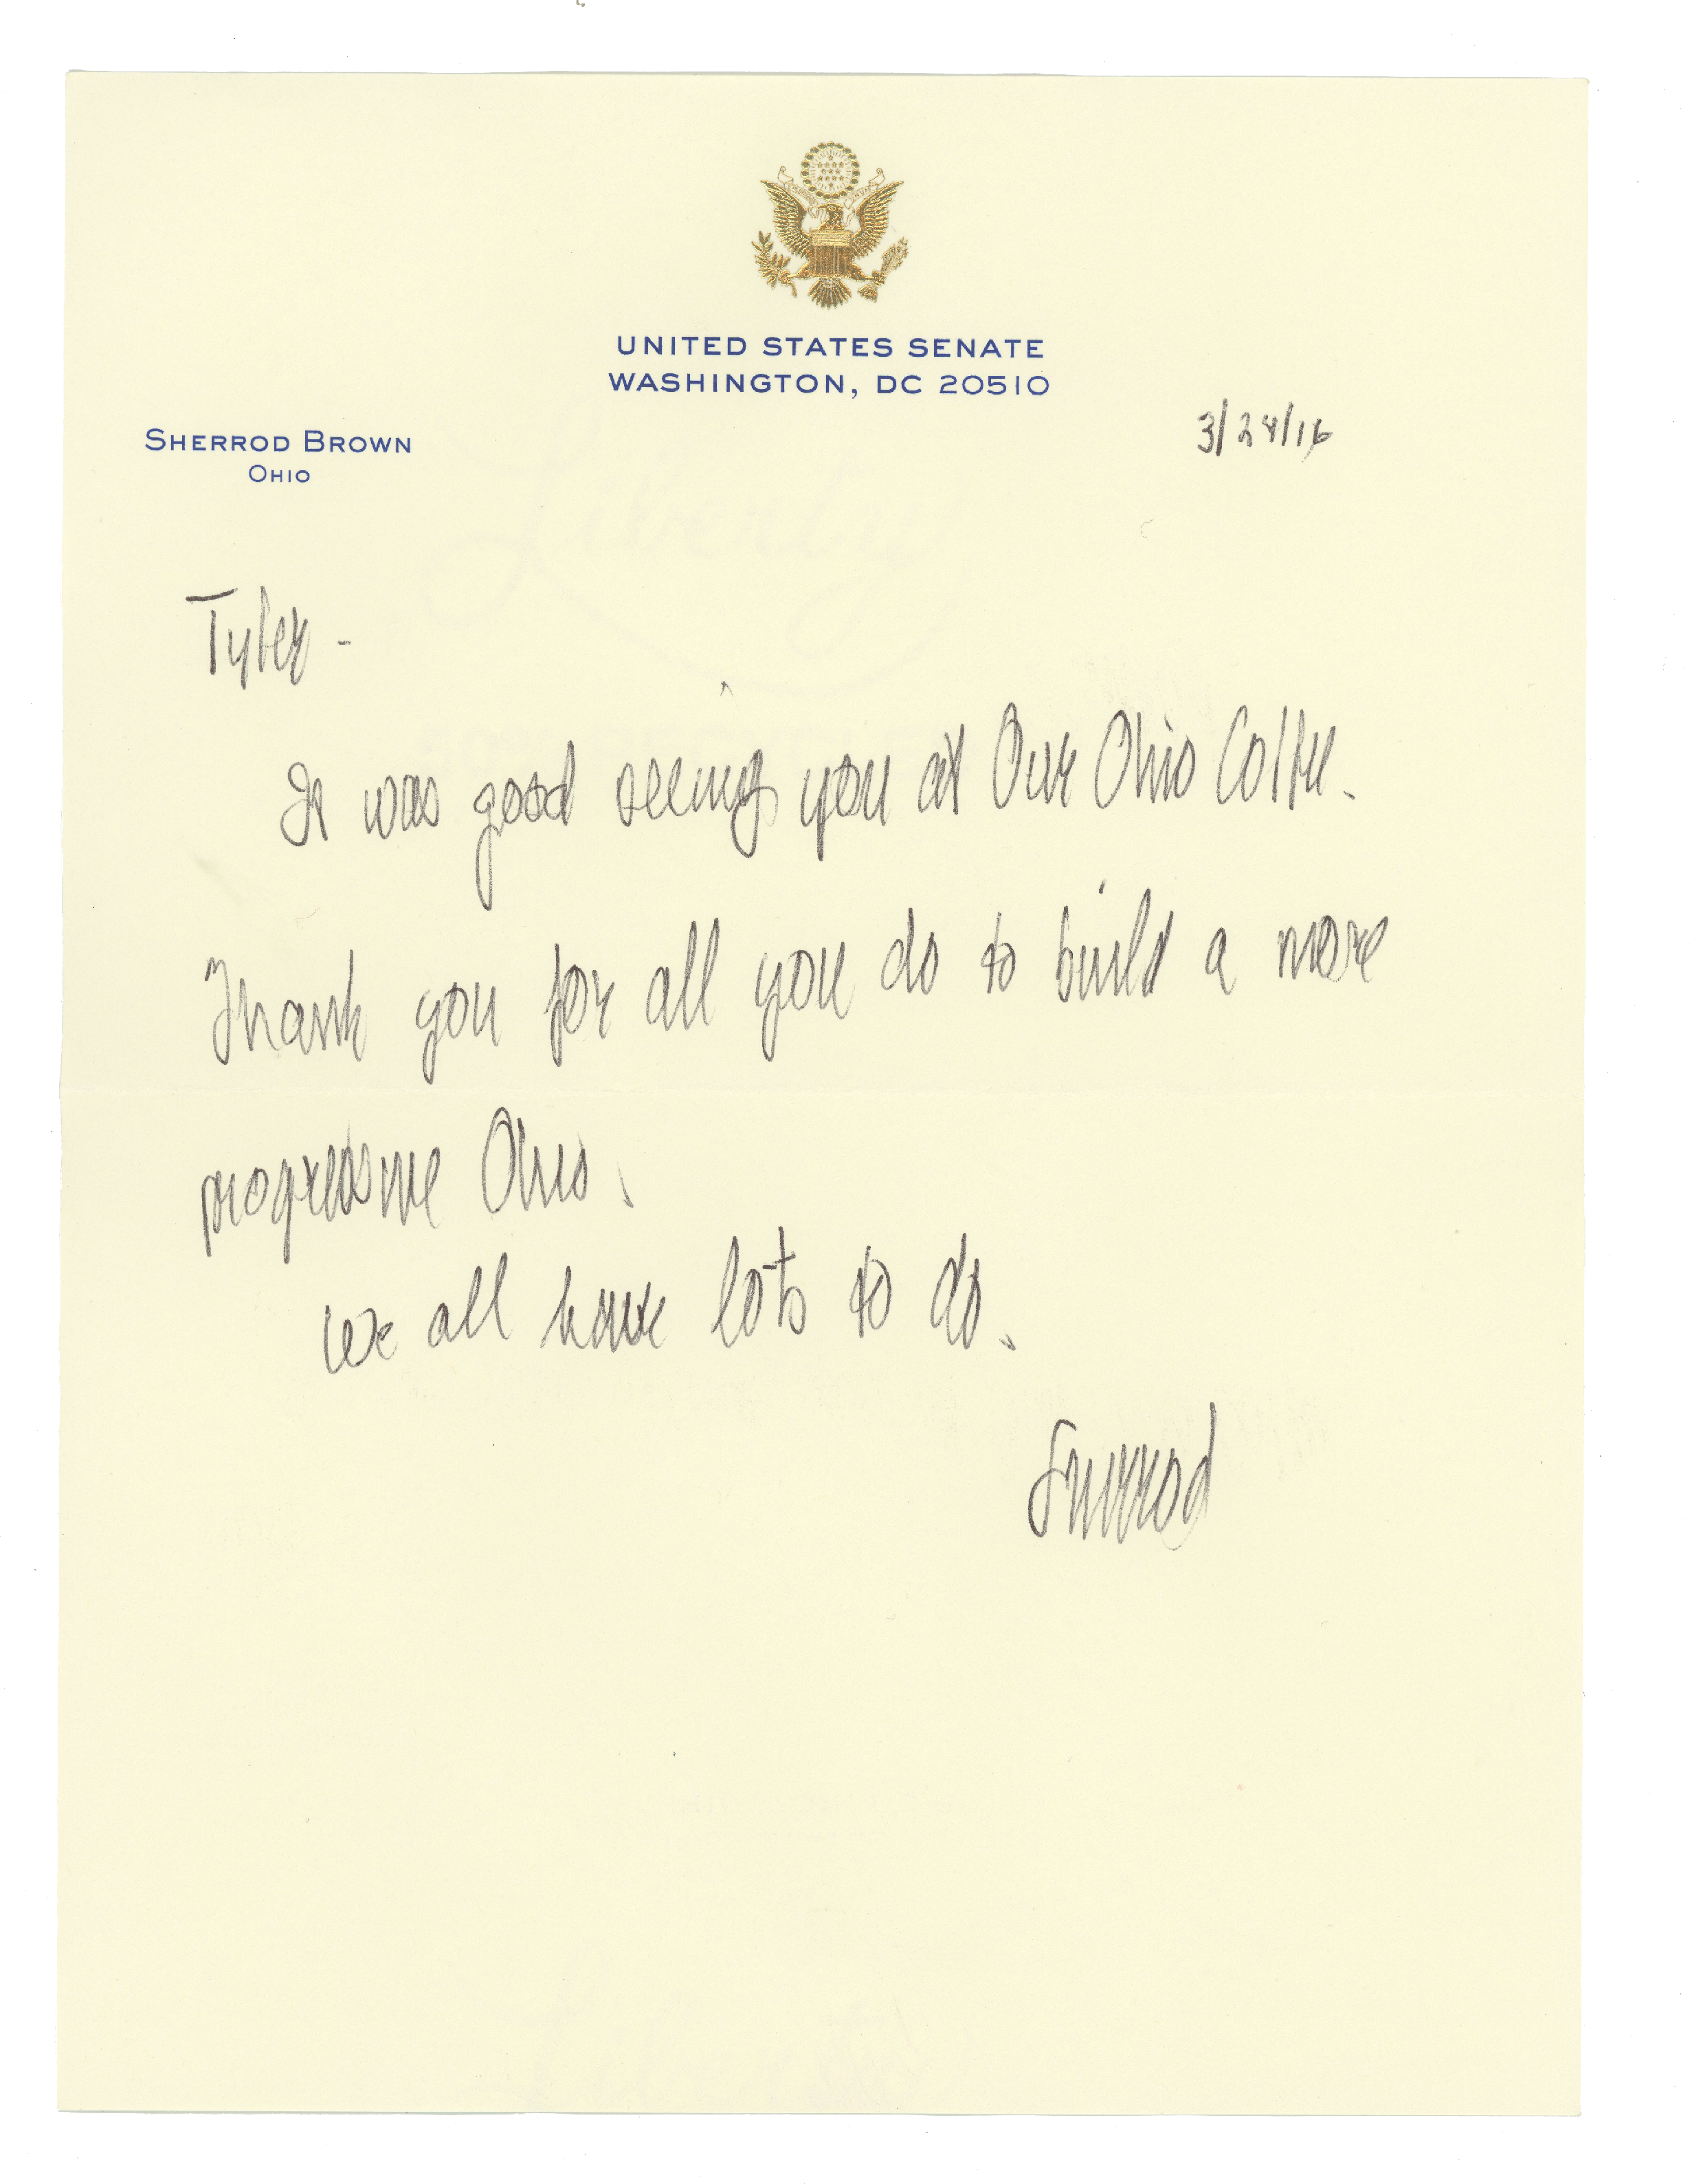 UNITED STATES SENATE
WASHINGTON, DC 20510
3/24/16
SHERROD BROWN
OHIO
Tyler -
It was good seeing you at Our Ohio Coffee.
Thank you for all you do to build a more
progressive Ohio.
We all have lots to do.
Sherrod